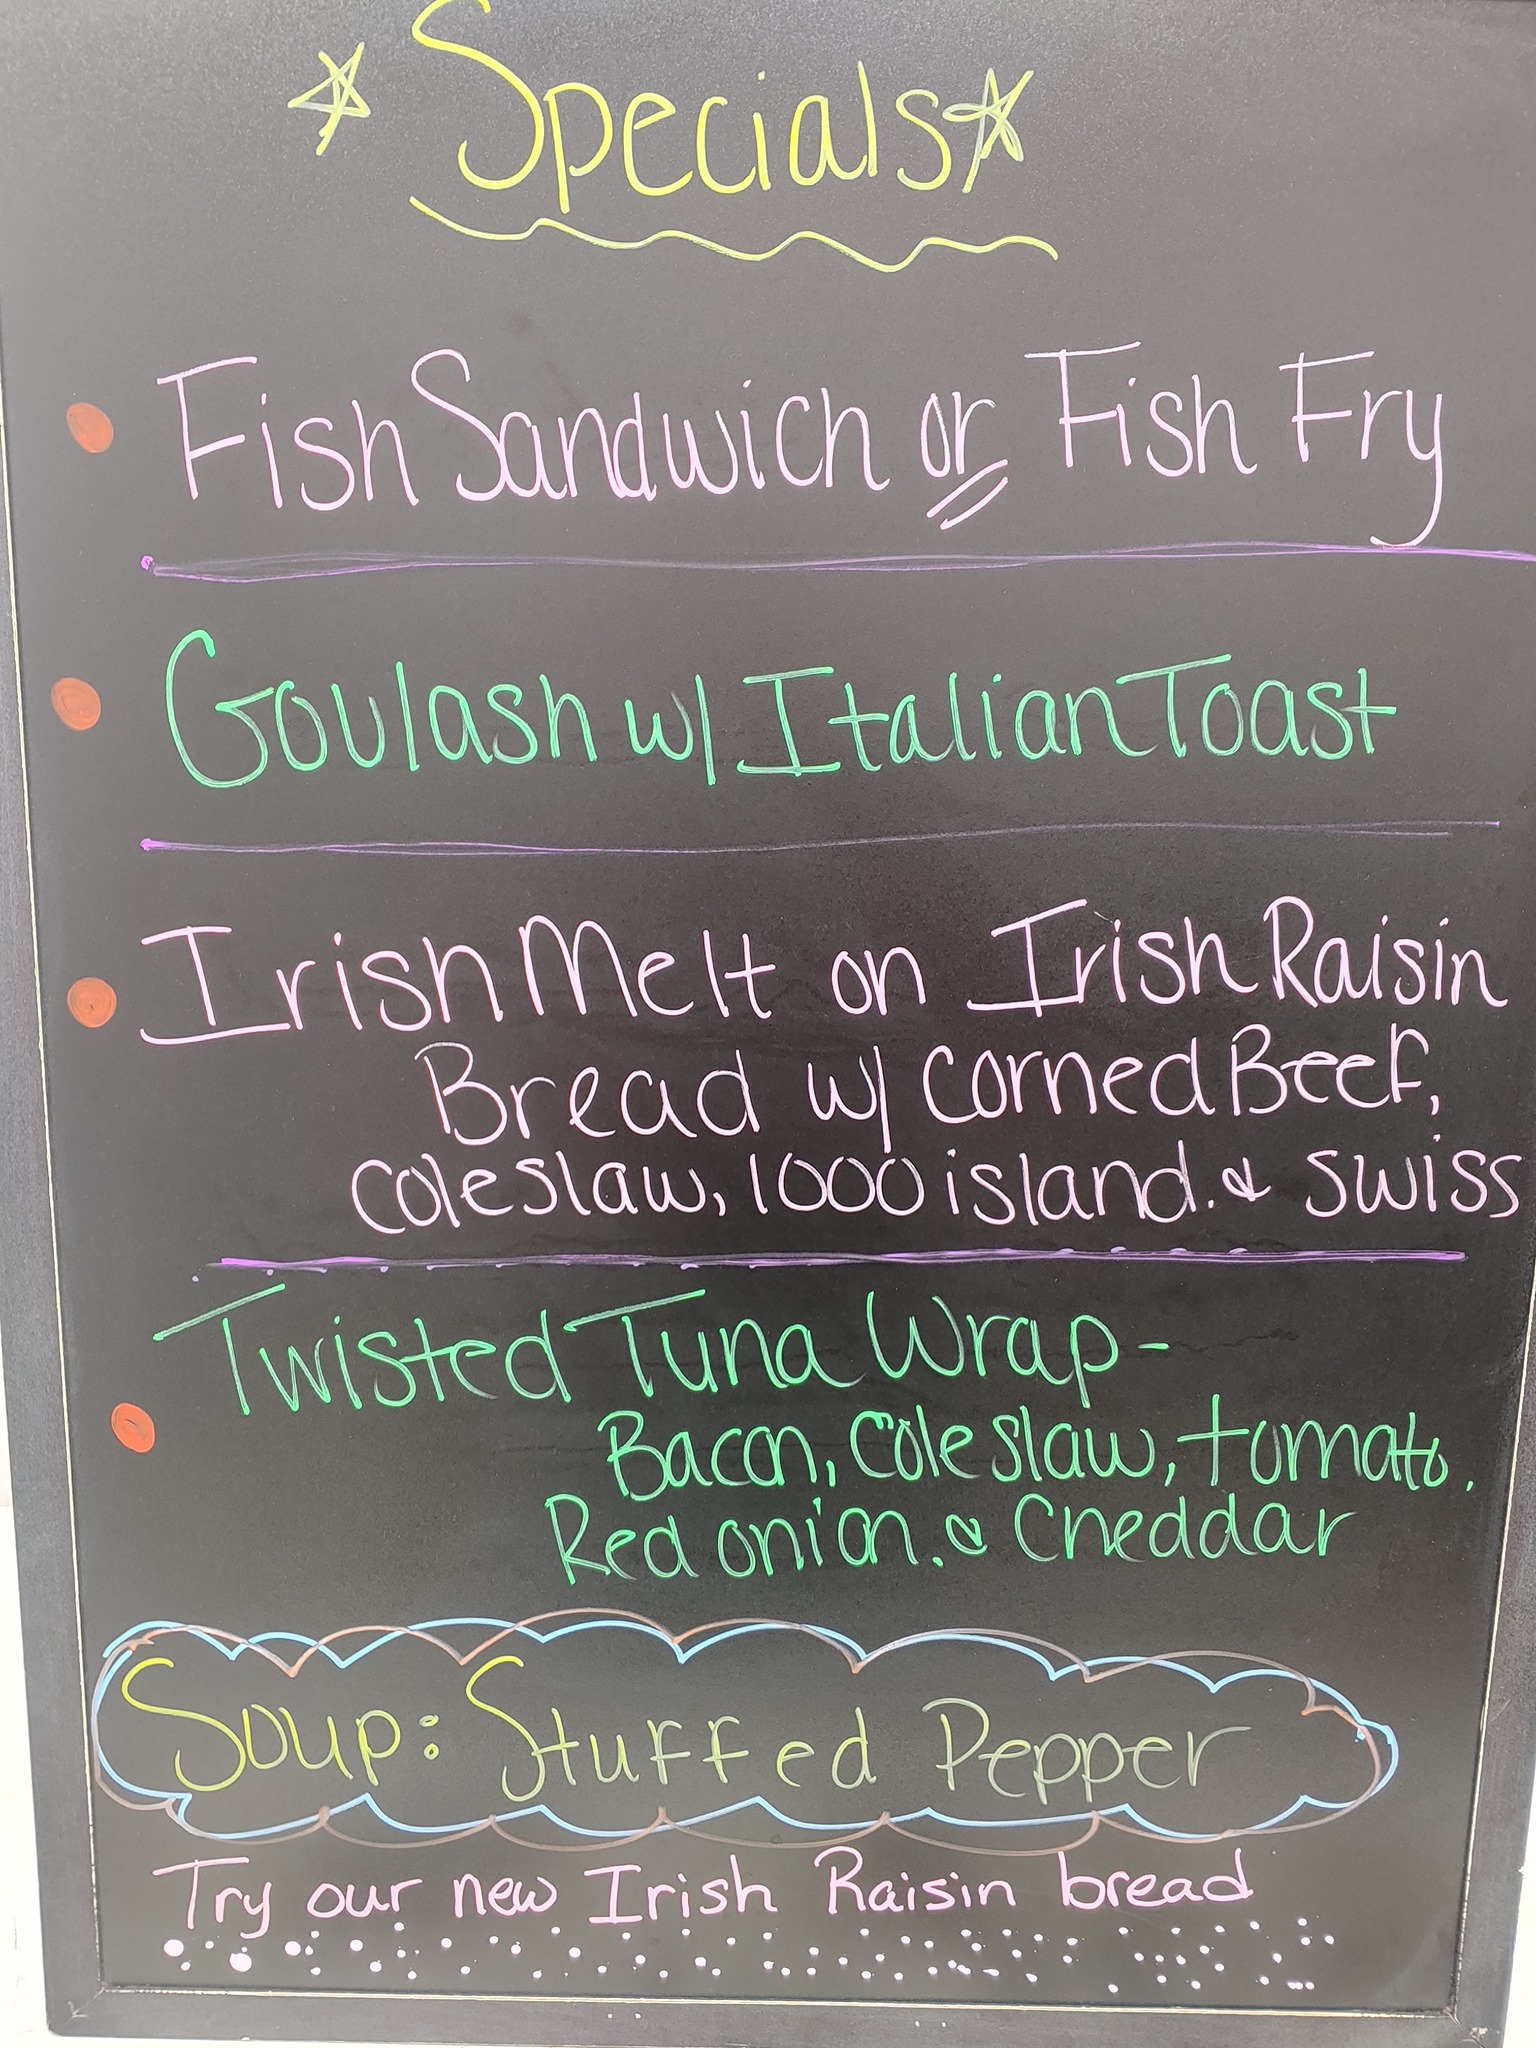 Specials
Fish Sandwich or Fish Fry
Goulash w/ Italian Toast
Irish Melt on Irish Raisin
Bread w/ Corned Beef,
Coleslaw, 1000 island. & Swiss
Twisted Tuna Wrap-
Bacon, Coleslaw, tomato.
Red onion. & Cheddar
Soup: Stuffed Pepper
Try our new Irish Raisin bread